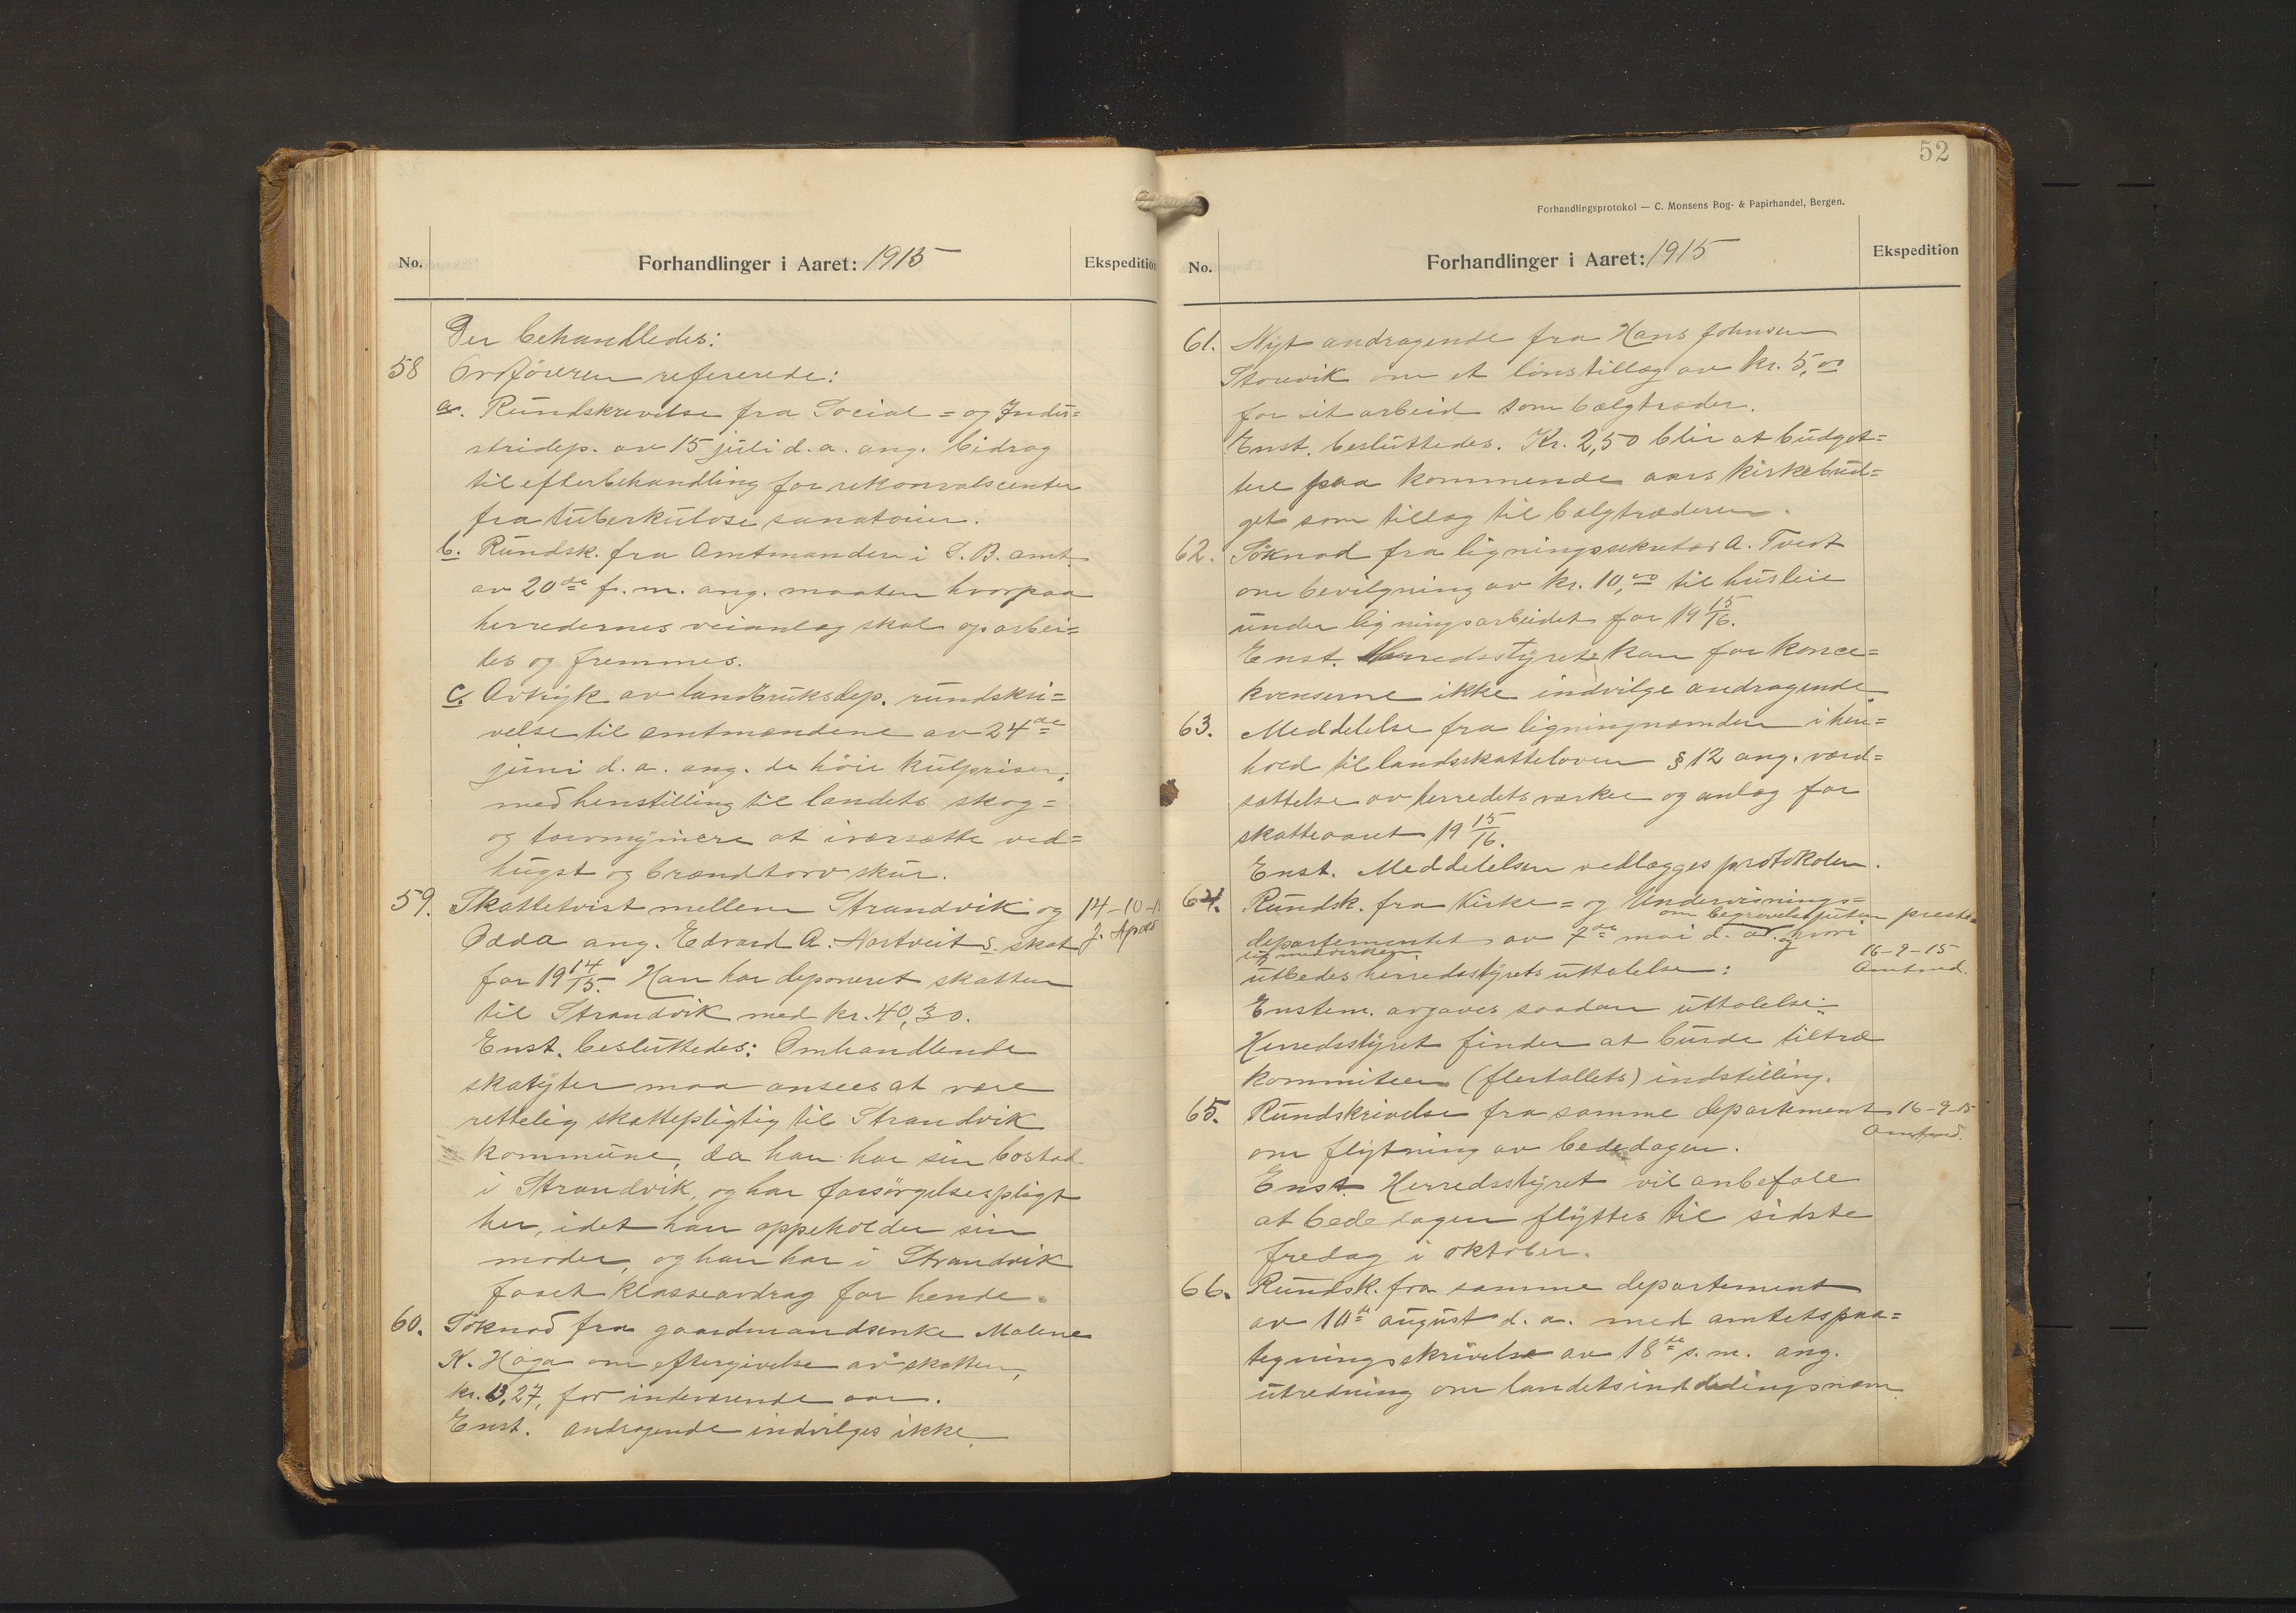 No.
Forhandlinger i Aaret: 1915
Ekspedition
Der behandledes:
58 Ordføreren refererede:
a. Rundskrivelse fra Social= og Indu=
stridep. av 15 juli d. a. ang. bidrag
til efterbehandling for rekonvalscenter
fra tuberkulosesanatorier.
b. Rundsk. fra Amtmanden i S. B. amt
av 20de f. m. ang. maaten hvorpaa
herredernes veianlæg skal oparbei=
des og fremmes.
c. Avtryk av landbruksdep. rundskri=
velse til amtmændene av 24de
juni d. a. ang. de høie kulpriser,
med henstilling til landets skog=
og torvmyreiere at iværsætte ved=
hugst og brændtorvskur.
59. Skattetvist mellem Strandvik og
Odda ang. Edvard A. Nortveits skat
for 1914/15. Han har deponeret skatten
til Strandvik med kr. 40,30.
Enst. besluttedes: Omhandlende
skatyter maa ansees at være
rettelig skattepligtig til Strandvik
kommune, da han har sin bostad
i Strandvik, og har forsørgelsespligt
her, idet han oppeholder sin
moder, og han har i Strandvik
faaet klasseavdrag for hende.
14-10-1
60. Søknad fra gaardmandsenke Malene
K. Haga om eftergivelse av skatten,
kr. 13,27, for indeværende aar.
Enst. andragende indvilges ikke.
52
Forhandlingsprotokol — C. Monsens Bog- & Papirhandel, Bergen.
No.
Forhandlinger i Aaret: 1915
Ekspedition
61. Nyt andragende fra Hans Johnsen
Storvik om et lønstillæg av kr. 5,00
for sit arbeid som bælgtræder.
Enst. besluttedes. Kr. 2,50 blir at budget=
tere paa kommende aars kirkebud=
get som tillæg til bælgtræderen.
62. Søknad fra ligningssekretær A. Tveit
om bevilgning av kr. 10,00 til husleie
under ligningsarbeidet for 1915/16.
Enst. Herredsstyret kan for konce=
kvenserne ikke indvilge andragende.
63. Meddelelse fra ligningnæmden i hen=
hold til landsskatteloven § 12 ang. værd=
sættelse av herredets verker og anlæg for
skatteaaret 1915/16.
Enst. Meddelelsen vedlægges protokolen.
64. Rundsk. fra Kirke= og Undervisnings=
om begravelse uten preste=
departementet av 7de mai d. a. og hvori
lig medvirken
utbedes herredsstyrets uttalelse:
16-9-15
Amtmd.
Enstem. avgaves saadan uttalelse:
Herredsstyret finder at burde tiltræ
kommiteen (flertallets) indstilling.
65. Rundskrivelse fra samme departement
om flytning av bededagen.
16-9-15
Amtmd.
Enst. Herredsstyret vil anbefale
at bededagen flyttes til sidste
fredag i oktober.
66. Rundsk. fra samme departement
av 10de august d. a. med amtets paa=
tegningsskrivelse av 18de s. m. ang.
utredning om landets inddelingsnavn